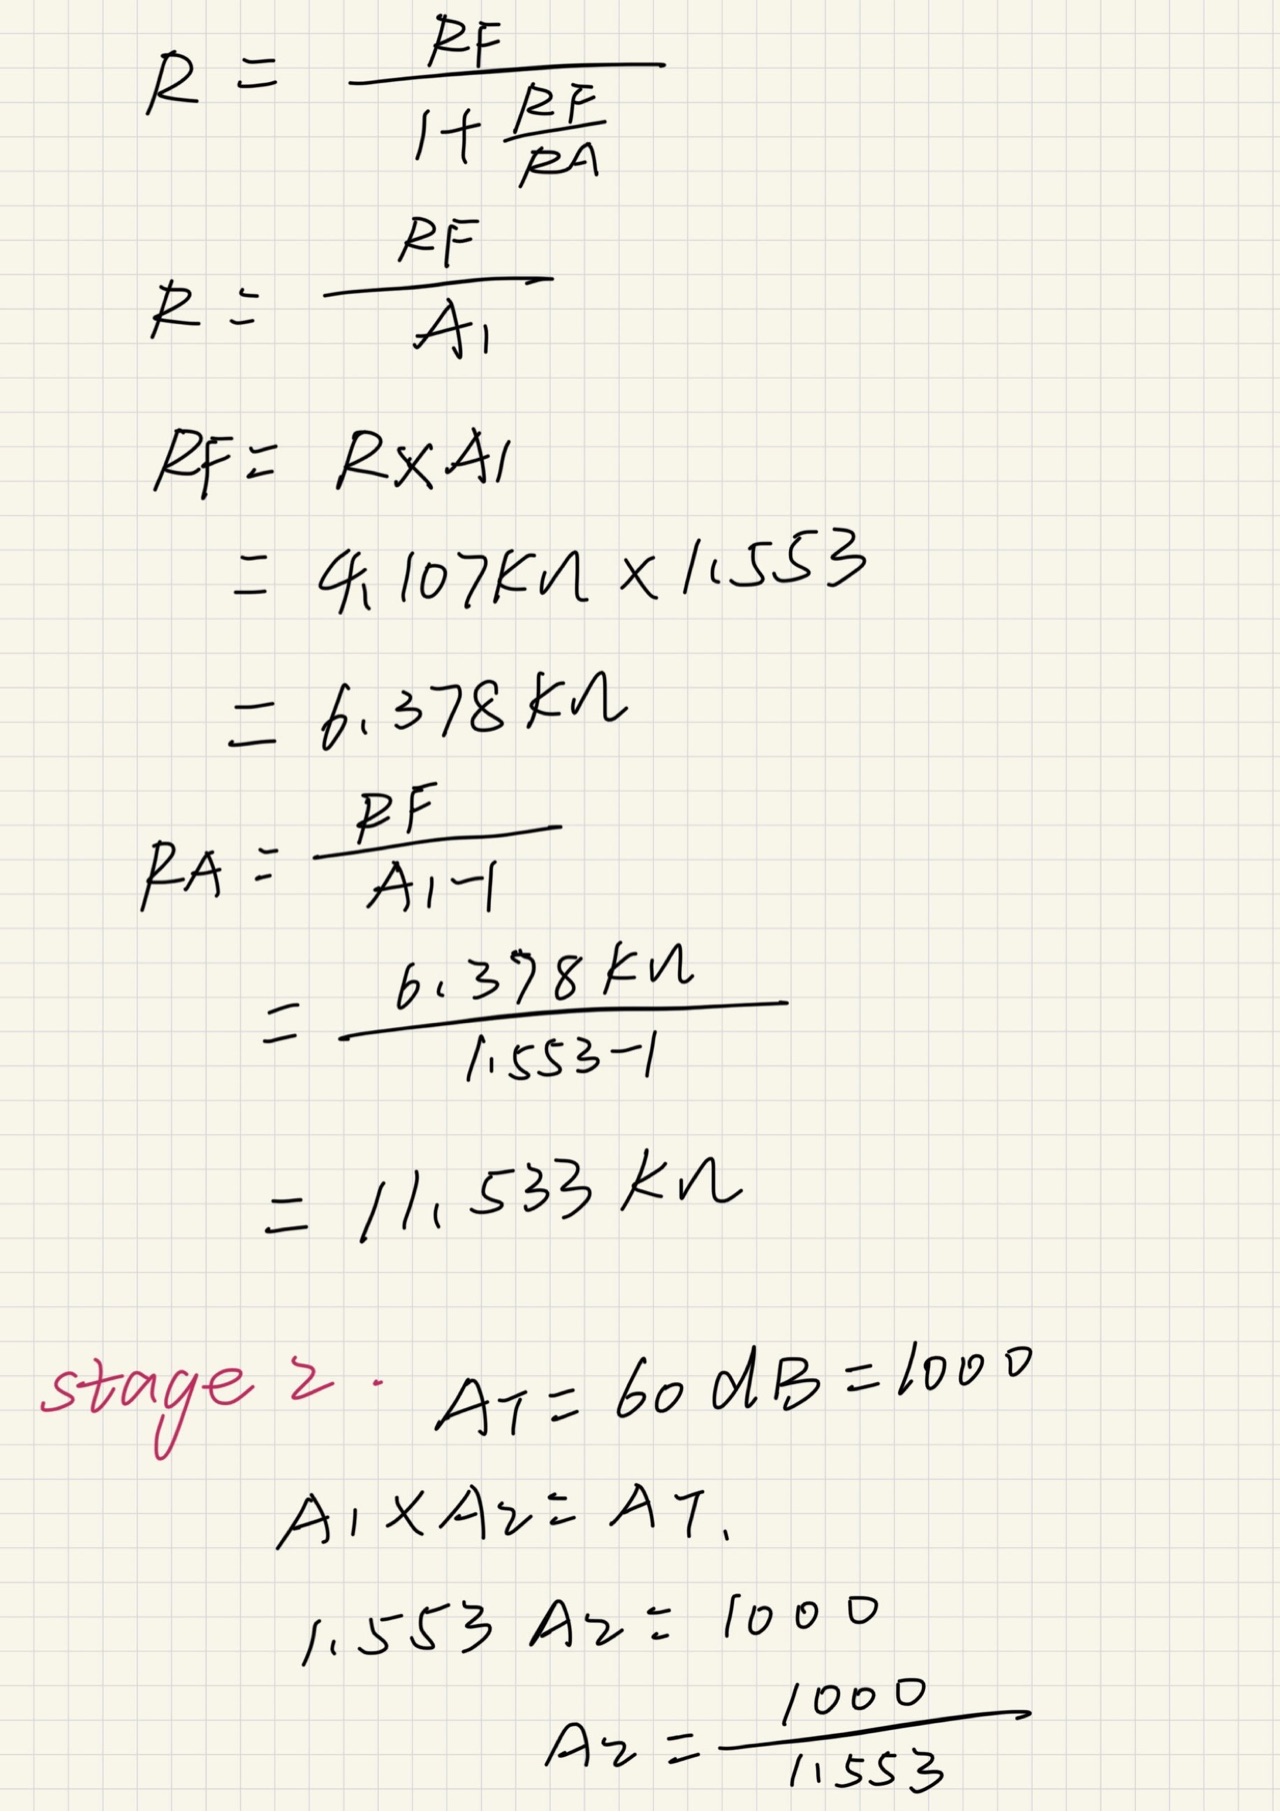 R = RF / (1 + RF/RA)
R = RF / A1
RF = R × A1
= 4.107KΩ × 1.553
= 6.378KΩ
RA = RF / (A1-1)
= 6.378KΩ / (1.553-1)
= 11.533KΩ
stage 2. AT = 60 dB = 1000
A1 × A2 = AT.
1.553 A2 = 1000
A2 = 1000 / 1.553